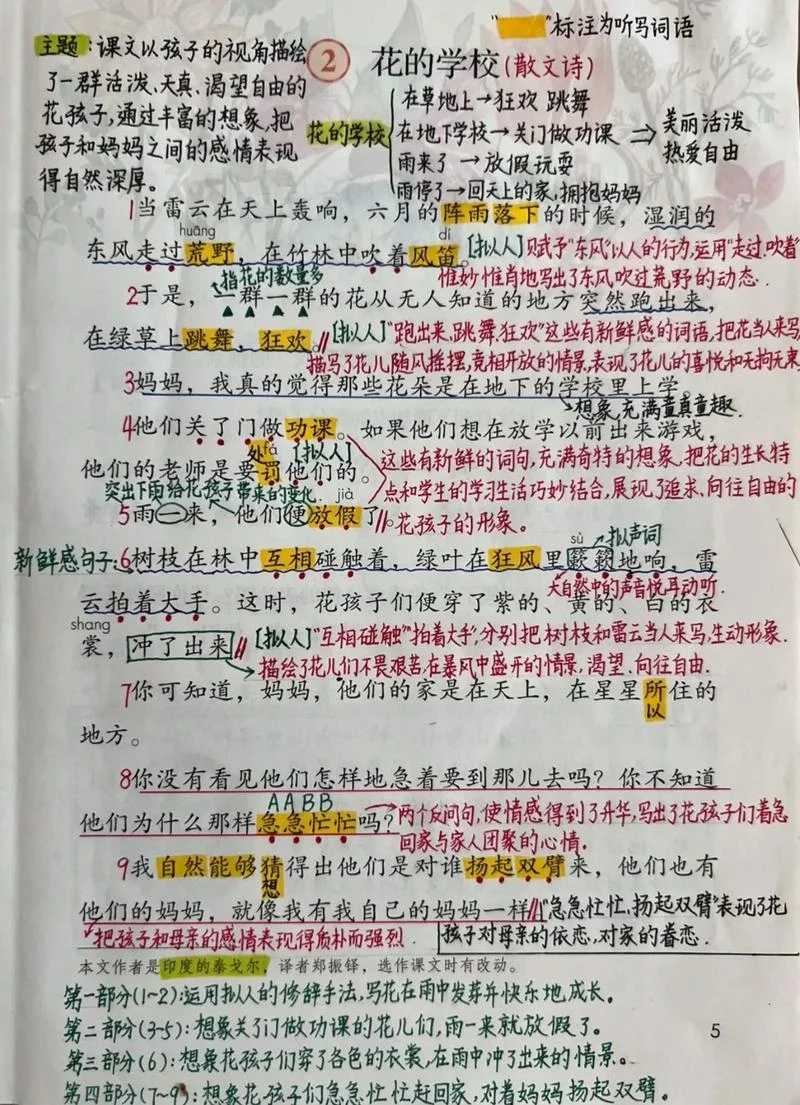 "        "标注为听写词语
主题:课文以孩子的视角描绘
了一群活泼、天真、渴望自由的
花孩子,通过丰富的想象,把
孩子和妈妈之间的感情表现
得自然深厚。
2 花的学校(散文诗)
花的学校
在草地上→狂欢 跳舞
在地下学校→关门做功课
雨来了→放假玩耍
雨停了→回天上的家,拥抱妈妈
⇒美丽活泼
热爱自由
1当雷云在天上轰响,六月的阵雨落下的时候,湿润的
huāng
dí
东风走过荒野,在竹林中吹着风笛。
[拟人]赋予"东风"以人的行为,运用"走过、吹着"
惟妙惟肖地写出了东风吹过荒野的动态.
指花的数量多
2于是,一群一群的花从无人知道的地方突然跑出来,
在绿草上跳舞、狂欢。
[拟人]"跑出来、跳舞、狂欢"这些有新鲜感的词语,把花当人来写
描写了花儿随风摇摆,竞相开放的情景,表现了花儿的喜悦和无拘无束
3妈妈,我真的觉得那些花朵是在地下的学校里上学。
想象,充满童真童趣.
4他们关了门做功课。如果他们想在放学以前出来游戏,
处 fá [拟人]
他们的老师是要罚他们的。
这些有新鲜的词句,充满奇特的想象,把花的生长特
点和学生的学习生活巧妙结合,展现了追求、向往自由的
花孩子的形象。
突出下雨给花孩子带来的变化.
jià
5雨一来,他们便放假了。
sù
拟声词
新鲜感句子:6树枝在林中互相碰触着,绿叶在狂风里簌簌地响,雷
大自然中的声音悦耳动听.
云拍着大手。这时,花孩子们便穿了紫的、黄的、白的衣
shang
裳,冲了出来。
[拟人]"互相碰触""拍着大手",分别把树枝和雷云当人来写,生动形象.
描绘了花儿们不畏艰苦,在暴风中盛开的情景,渴望、向往自由.
7你可知道,妈妈,他们的家是在天上,在星星所住的
以
地方。
8你没有看见他们怎样地急着要到那儿去吗?你不知道
AABB
他们为什么那样急急忙忙吗?
两个反问句,使情感得到了升华,写出了花孩子们着急
回家与家人团聚的心情.
9我自然能够猜得出他们是对谁扬起双臂来,他们也有
想
他们的妈妈,就像我有我自己的妈妈一样。
把孩子和母亲的感情表现得质朴而强烈.
"急急忙忙、扬起双臂"表现了花
孩子对母亲的依恋,对家的眷恋.
本文作者是印度的泰戈尔,译者郑振铎,选作课文时有改动。
第一部分(1~2):运用拟人的修辞手法,写花在雨中发芽并快乐地成长。
第二部分(3-5):想象关了门做功课的花儿们,雨一来就放假了。
第三部分(6):想象花孩子们穿了各色的衣裳,在雨中冲了出来的情景。
第四部分(7~9):想象花孩子们急急忙忙赶回家,对着妈妈扬起双臂。
5